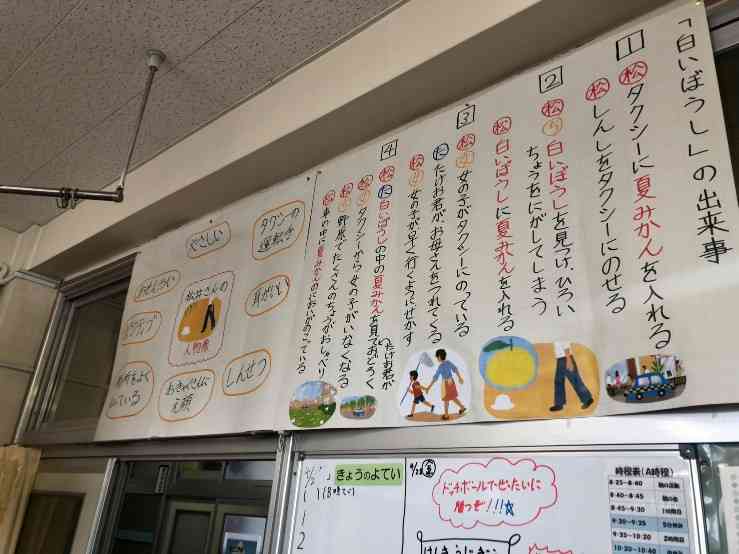 「白いぼうし」の出来事
1
松 タクシーに夏みかんを入れる
松 しんしをタクシーにのせる
2
松 白いぼうしを見つけ、ひろい
ちょうをにがしてしまう
松 白いぼうしに夏みかんを入れる
3
松 女の子がタクシーにのっている
た たけお君が、お母さんをつれてくる
女の子が早く行くようにせかす
4
松 た 白いぼうしの中の夏みかんを見ておどろく
たけお君が
タクシーから女の子がいなくなる
野原でたくさんのちょうがおしゃべり
松 車の中に夏みかんのにおいがのこっている
タクシーの運転手
耳がいい
しんせつ
やさしい
松井さんの
人物像
おきゃくさんに
元気
きょうのよてい
1(8時で)
1
2
ドッチボールでぜったいに
勝つぞ!!!
時程表(A時程)
8:25-8:40
8:40-8:45
8:45-9:30 1時間目
9:30-9:35 5分休み
9:35-10:20 2時間目
10:20-10:40